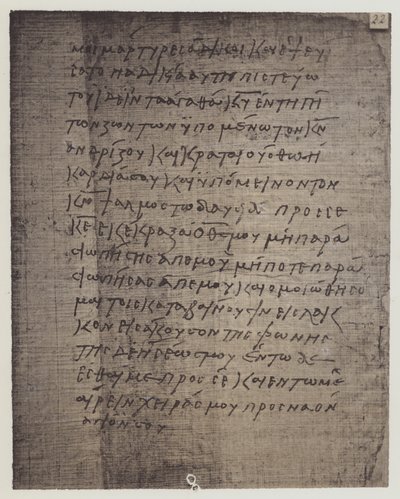 μοι μαρτυρες αδικοι και εψευ
σατο η αδικια αυτη πιστευω
του ιδειν τα αγαθα κυ εν τη γη
των ζωντων ϋπομενω τον κν
ανδριζου και κραταιουσθω η
καρδια σου και ϋπομεινον τον
κν ψαλμος τω δαυειδ προς σε
κε εκεκραξα ο θς μου μη παρα
σιωπησης απ εμου μηποτε παρα
σιωπησας απ εμου και ομοιωθησο
μαι τοις καταβαινουσιν εις λακ
κον εισακουσον της φωνης
της δεησεως μου εν τω δε
εσθαι με προς σε και εν τω με
αιρειν χειρας μου προς ναον
αγιον σου
22